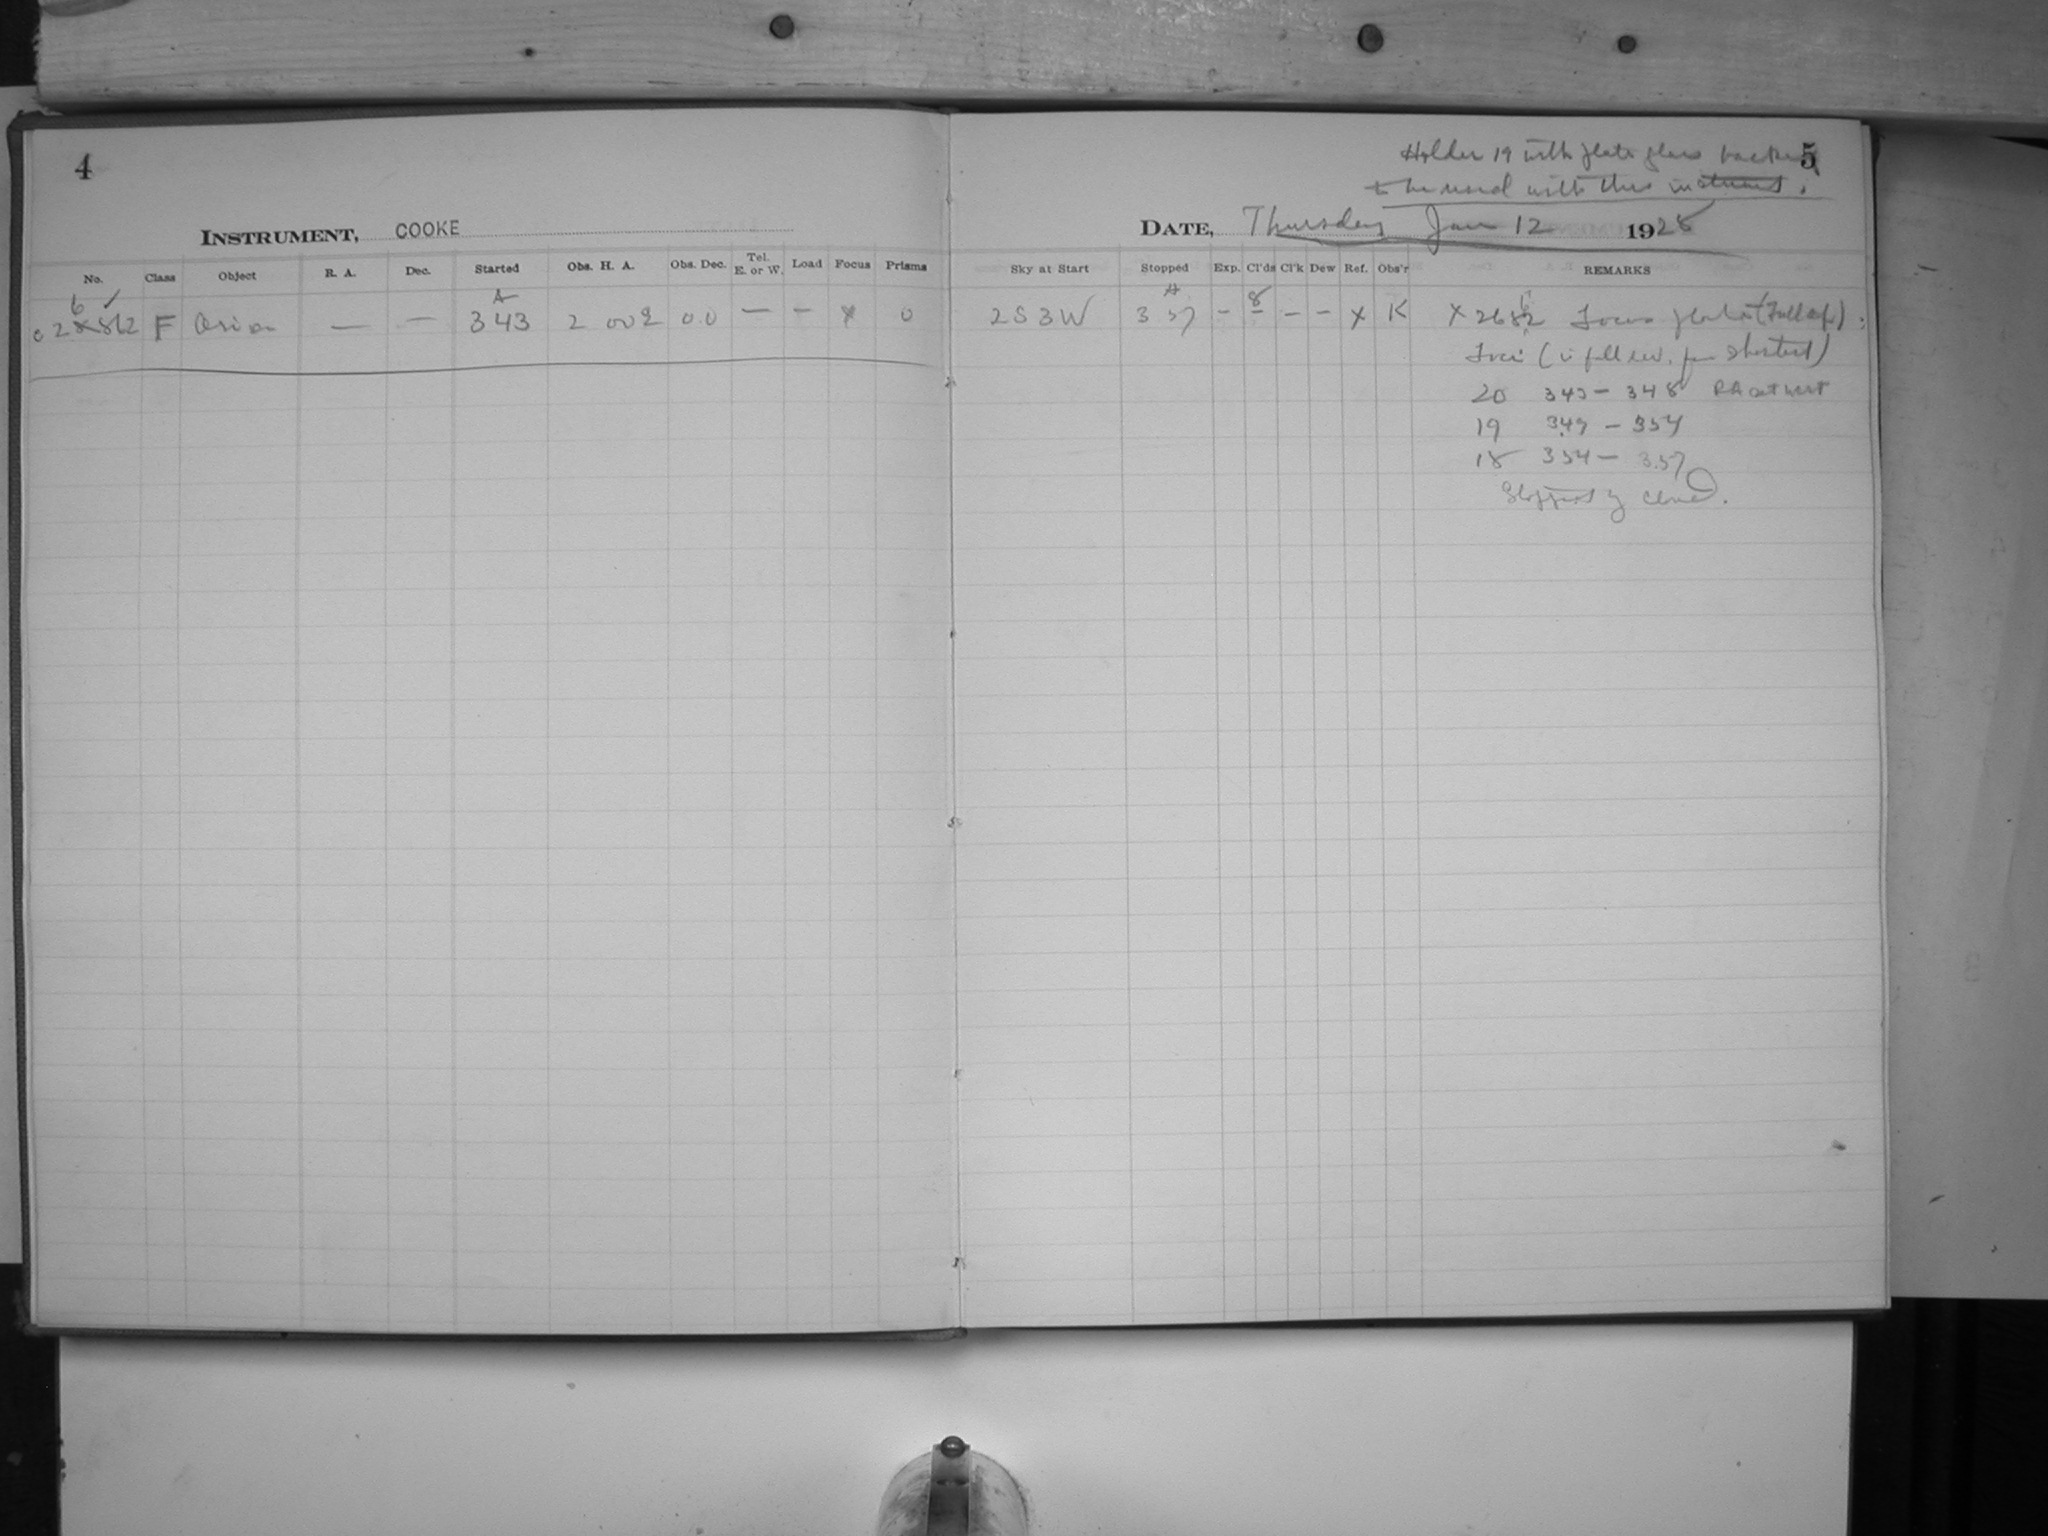 4
INSTRUMENT, COOKE
No. Class Object R. A. Dec. Started Obs. H. A. Obs. Dec. Tel. E. or W. Load Focus Prisms
F Orion — — 343 2 002 00 — — x 0
5
Holder 19 with plate glass backing
to be used with this instrument.
DATE, Thursday Jan 12 1928
Sky at Start Stopped Exp. Cl'ds Cl'k Dew Ref. Obs'r REMARKS
2S 3W 3 57 - 8 - - x K x Focus plate (Full ap)
Foci (
20 343 - 348 RA at west
19 349 - 354
18 354 - 3.57
Stopped by cloud.